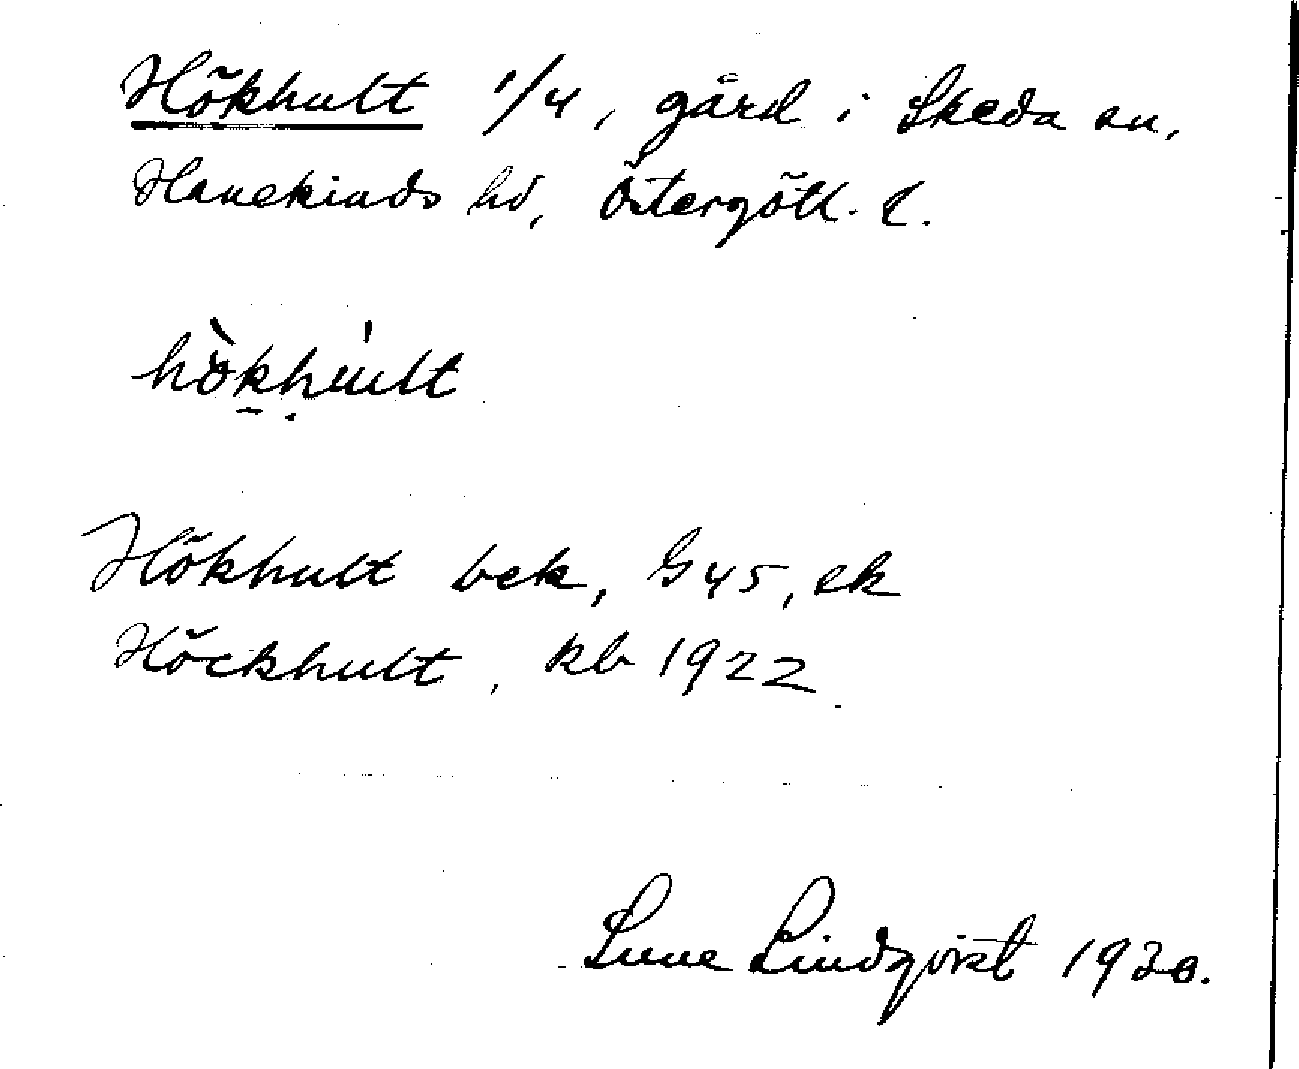 Hökhult 1/4, gård i Skeda sn,
Hanekinds hd, Östergötl. l.
hö̀khúlt
Hökhult bek, G45, ek
Höckhult, kb 1922
Sune Lindqvist 1930.